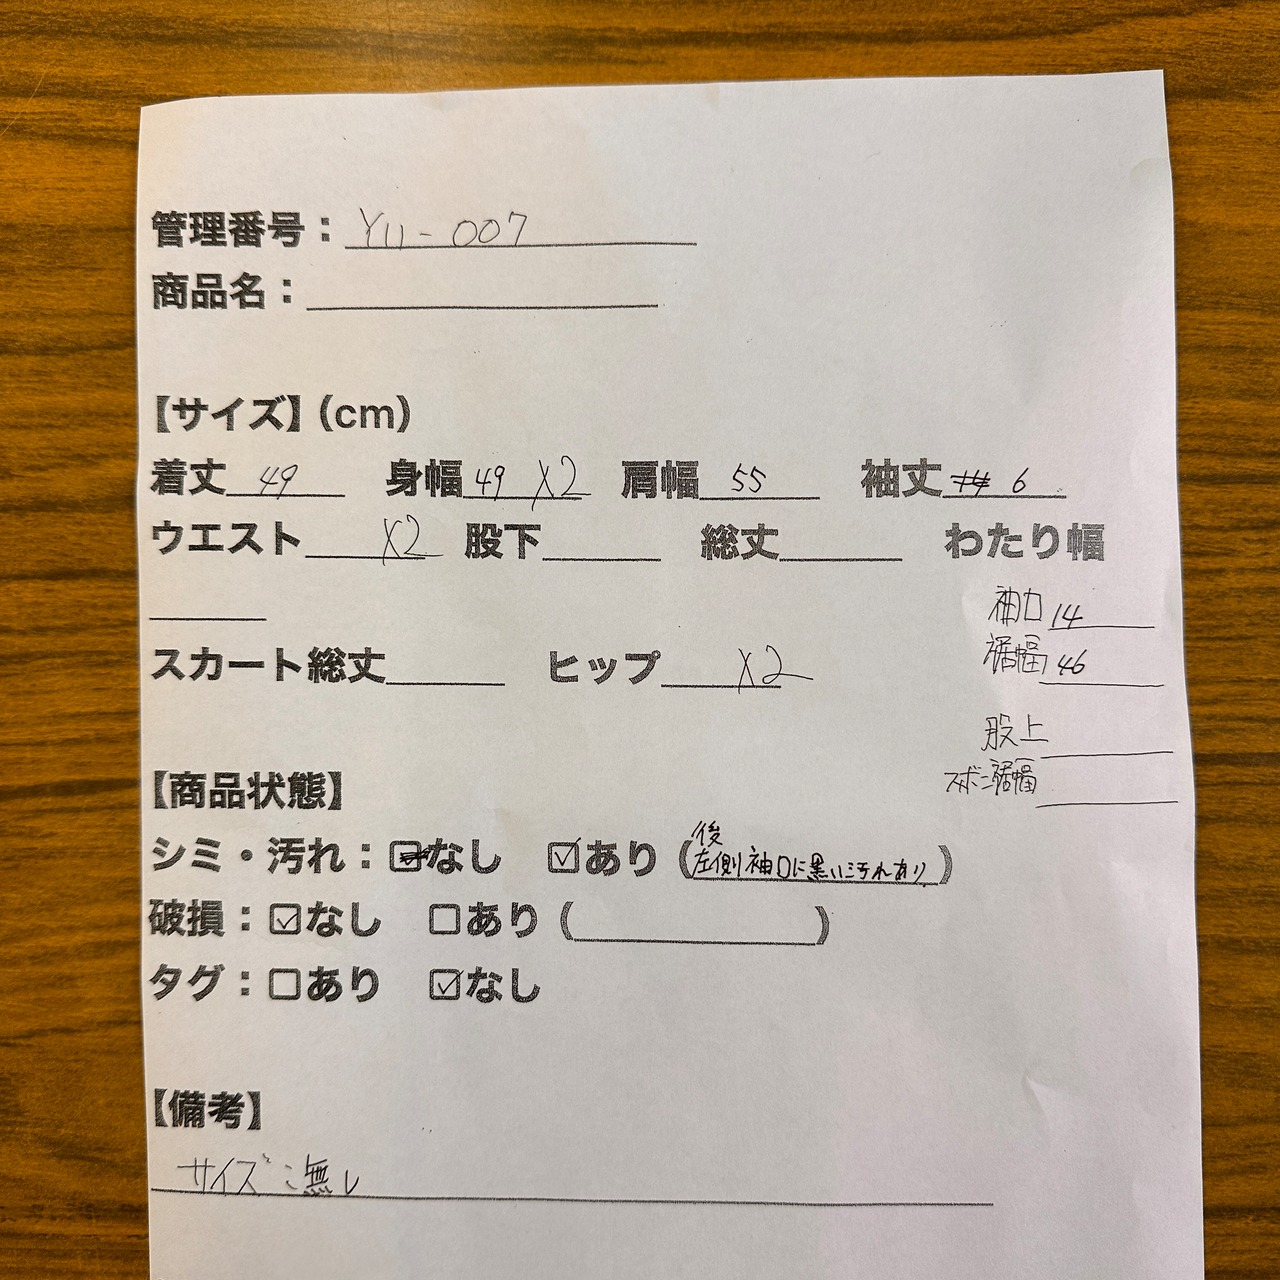 管理番号：YU-007
商品名：
【サイズ】(cm)
着丈 49 身幅 49 X2 肩幅 55 袖丈 6
ウエスト X2 股下 総丈 わたり幅
袖口 14
裾幅 46
スカート総丈 ヒップ X2
股上
ズボン裾幅
【商品状態】
シミ・汚れ：☑なし ☑あり (後 左側袖口に黒い汚れあり)
破損：☑なし □あり ( )
タグ：□あり ☑なし
【備考】
サイズ：無し